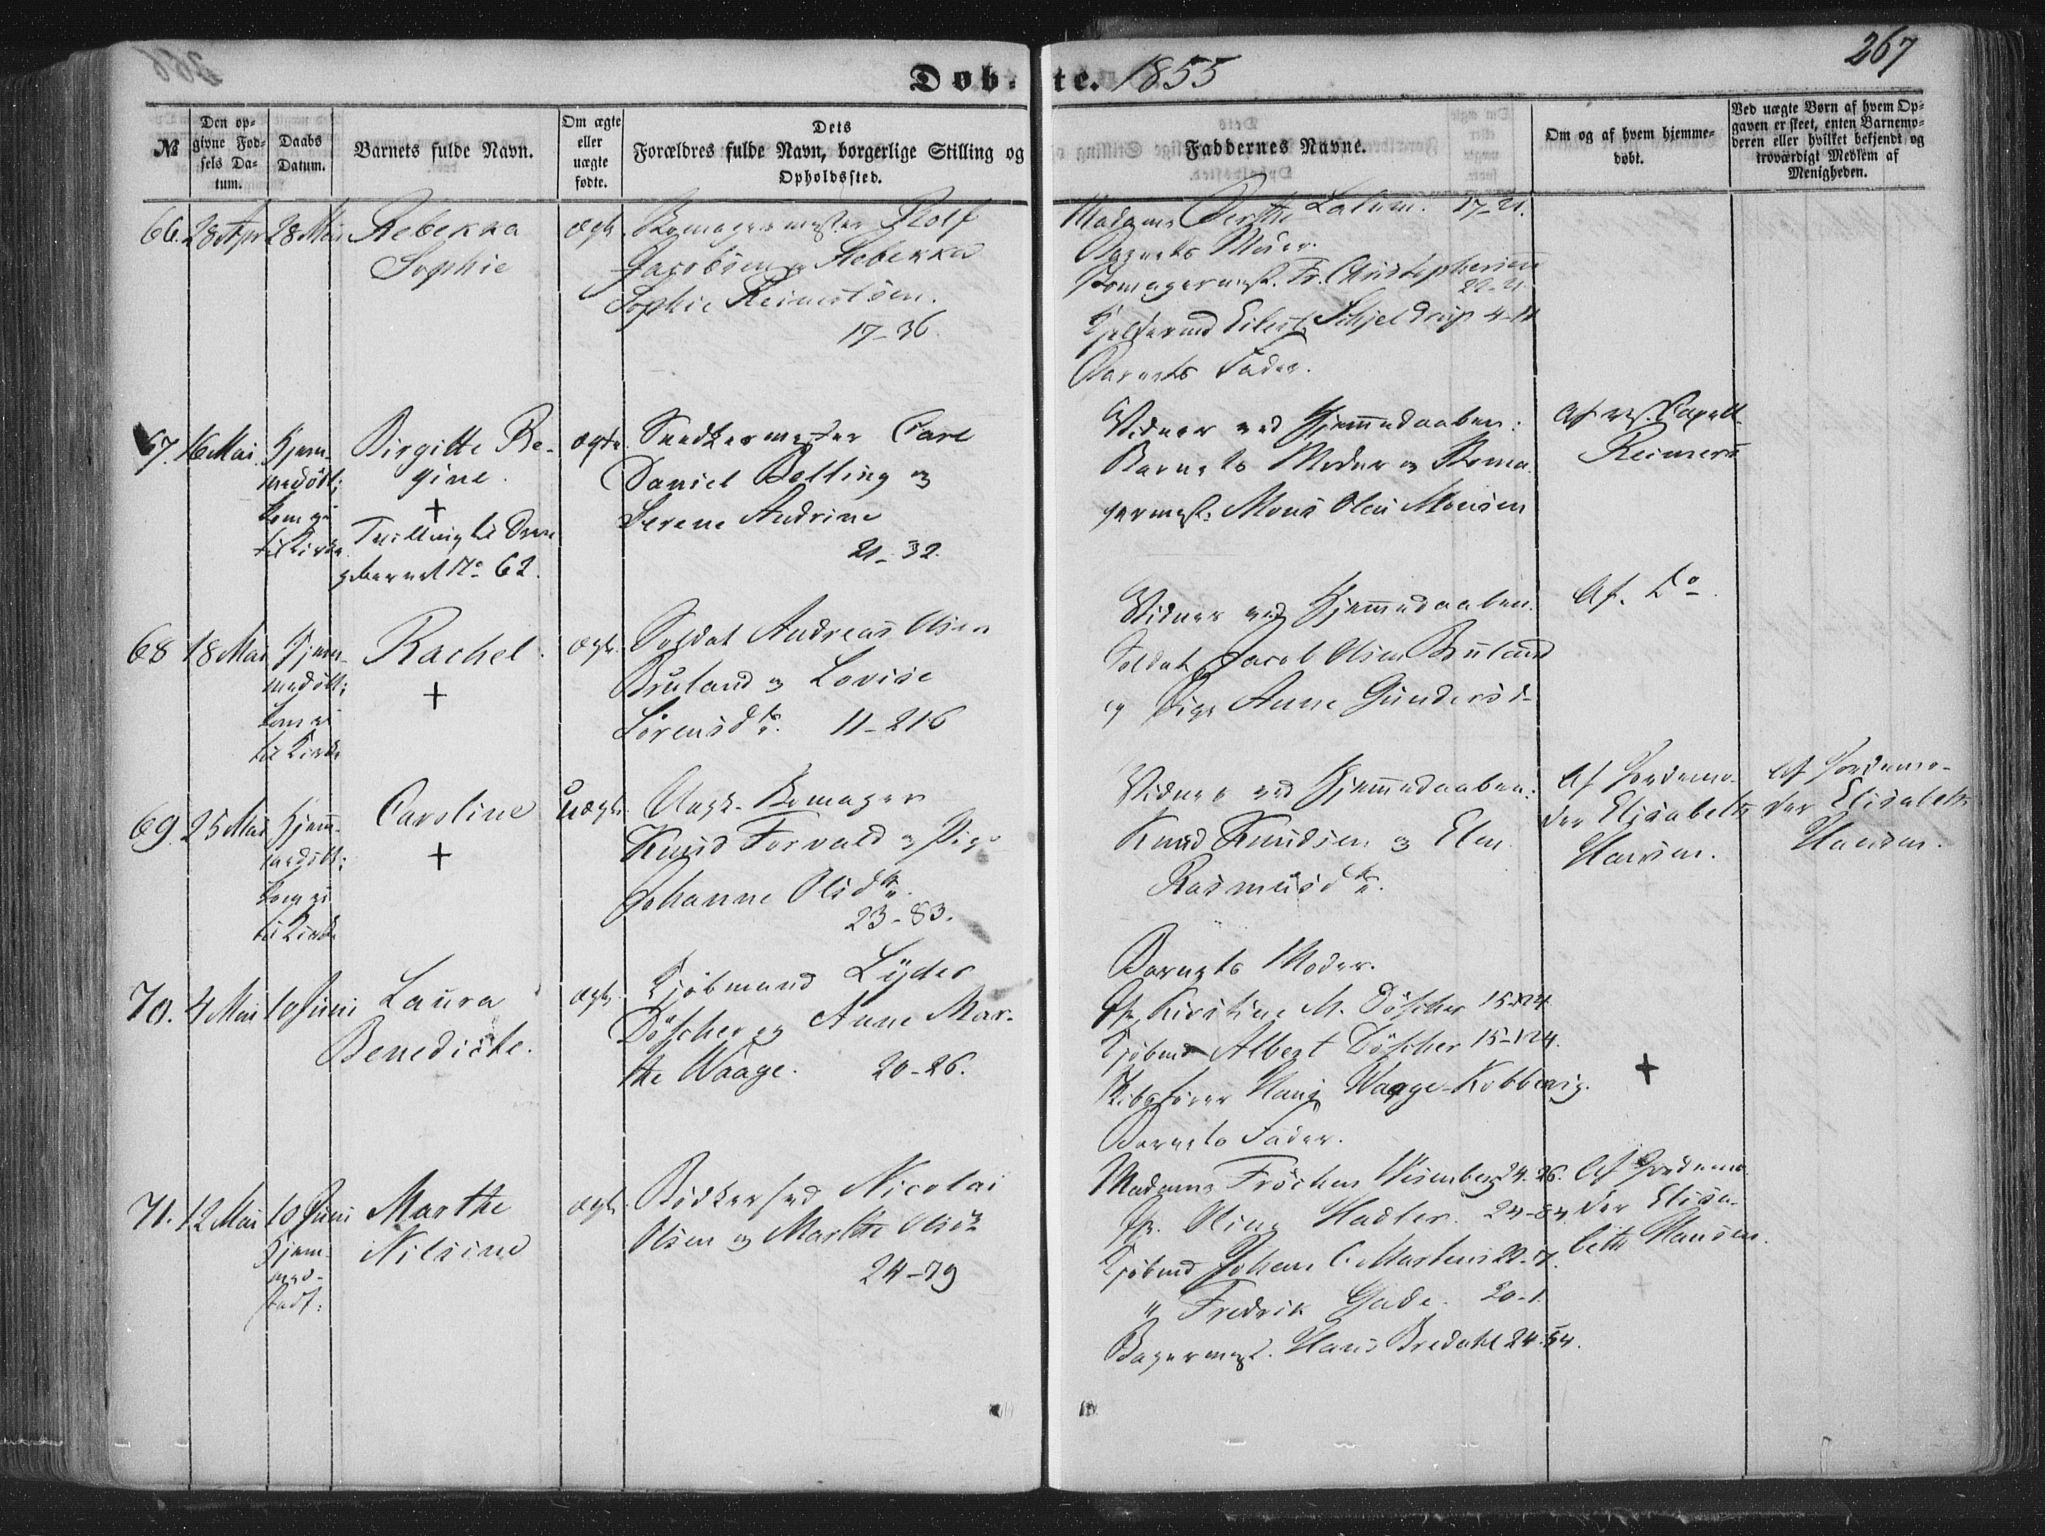 267
Døb- te. 1855
№
Den op-
givne Fød-
sels Da-
tum.
Daabs
Datum.
Barnets fulde Navn.
Om ægte
eller
uægte
fødte.
Dets
Forældres fulde Navn, borgerlige Stilling og
Opholdssted.
Faddernes Navne.
Om og af hvem hjemme-
døbt.
Ved uægte Børn af hvem Op-
gaven er skeet, enten Barnemo-
deren eller hvilket bekjendt og
troværdigt Medlem af
Menigheden.
66. 28 Apr 28 Mai Rebekka
Sophie
ægte.
Rolf
Jacobsen og Rebekka
Sophie Reinertsen.
17-36.
Madame Berthe 17-21.
Barnets Moder.
Fr. Christophersen
22-21.
Eilert Schjeldrup 4-11
Barnets Fader.
67. 16 Mai Hjem-
medøbt;
kom ei
til Kirke
Birgitte Re-
gine.
+
Tvilling til Drenge-
barnet No 62.
ægte.
Snedkermester Carl
Daniel Delling og
Serene Andrine
21-32.
Vidner ved Hjemmedaaben:
Barnets Moder og
Mons Olai Monsen
Af res. Capell.
Reimers
68 18 Mai Hjem-
medøbt;
kom ei
til Kirke
Rachel.
+
ægte.
Soldat Andreas Olsen
Bruland og Lovise
Sørensdtr. 11-216
Vidner ved Hjemmedaaben.
Soldat Jacob Olsen Bruland
og Pige Anne Gundersd-
Af. Do.
69. 25 Mai Hjem-
medøbt;
kom ei
til Kirke
Caroline
+
Uægte.
Knud Forvald og Pige
Johanne Olsdtr.
23-83.
Vidner ved Hjemmedaaben:
Knud Knudsen og Elen
Rasmusdtr.
Af Jordemo-
der Elisabeth
Hansen.
Af Jordemo-
der Elisabeth
Hansen.
70. 4 Mai 10 Juni Laura
Benedicte.
ægte.
Kjøbmand Lyder
Döscher og Anne Mar-
the Waage. 20-26.
Barnets Moder.
Kirstine M. Döscher 15-124.
Kjøbmd Albert Döscher 15-124.
Skibsfører Hans Waage-Kobbevig.
Barnets Fader.
+
71. 12 Mai 10 Juni
Hjem-
med-
Marthe
Nilsine
ægte.
Bødkersvd Nicolai
Olsen og Marthe Olsdtr
24-79
Madame Frøchen Wesenberg 24-26.
Oline Hadler. 24-84
Kjøbmd Johan C. Martens 22-7.
" Fredrik Gade. 20-1.
Bagermest. Hans Bredahl 24-54.
Af Jordemo-
der Elisa-
beth Hansen.
+